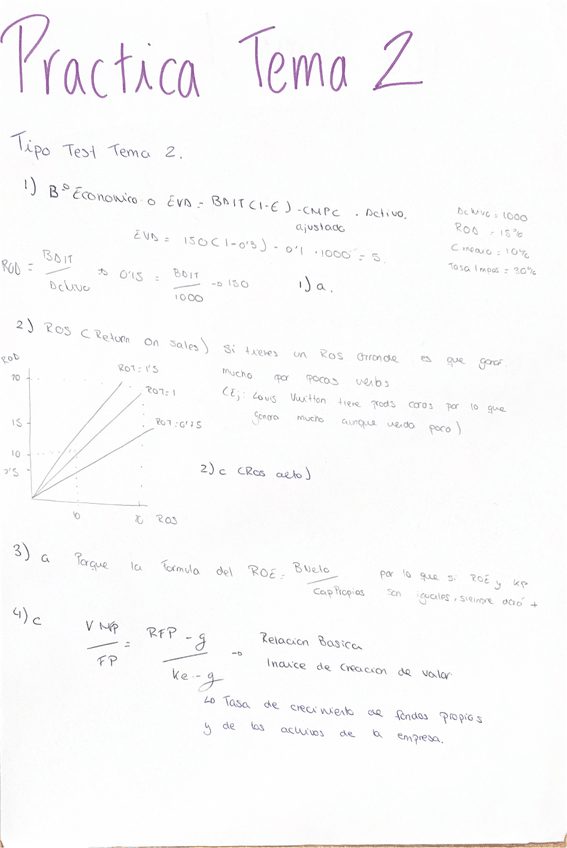 Practica Tema 2
Tipo Test Tema 2.
1) Bº Economico o EVA = BAIT (1-t) - CMPC . Activo.
ajustado
Activo = 1000
ROA = 15%
C medio = 10%
Tasa Impos = 30%
EVA = 150 (1-0'3) - 0'1 · 1000 = 5.
ROA = BAIT / Activo → 0'15 = BAIT / 1000 → 150
1) a.
2) ROS (Return On Sales) Si tienes un ROS grande es que ganas
mucho por pocas
(Ej: Louis Vuitton tiene prods caros por lo que
genera mucho aunque venda poco)
ROA
20
15
10
ROT = 1'5
ROT = 1
ROT = 0'75
10
ROS
2) c (ROS alto)
3) a Porque la formula del ROE = BNeto / Cap Propios por lo que si ROE y kp
son iguales, siempre dará +
4) c
FP
RFP - g / ke - g → Relacion Basica
Indice de creacion de valor
↳ Tasa de crecimiento de fondos propios
y de los activos de la empresa.